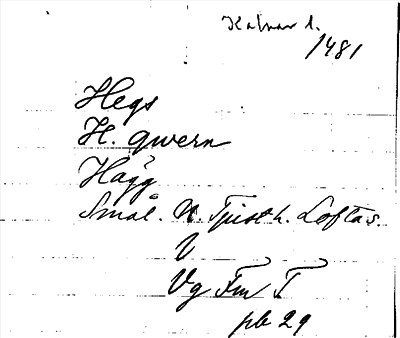 Kalmar l.
1481
Hegs
H. qwern
Hägg
Smål. N. Tjust h. Lofta s.
V
Vg Fm T
pb 29